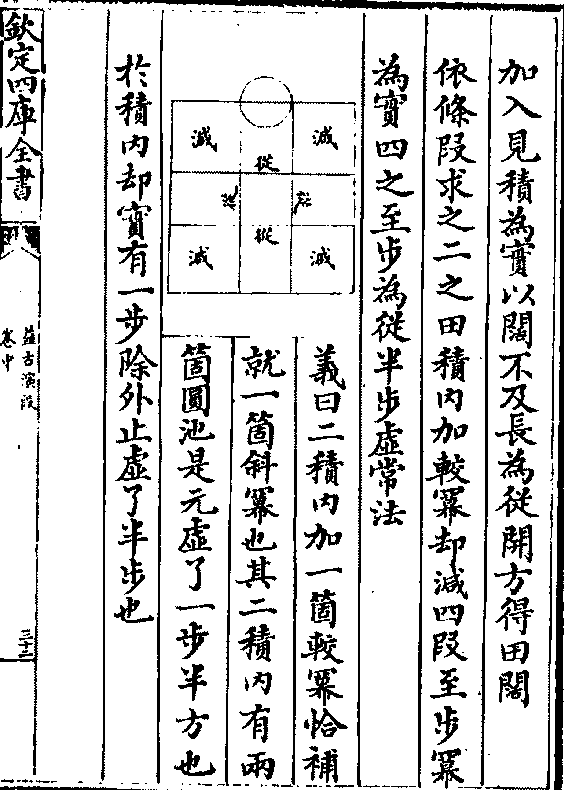 加入見積為實以闊不及長為從開方得田闊
依條段求之二之田積內加較羃却減四段至步羃
為實四之至步為從半步虛常法
減
減
從
從
從
從
減
減
義曰二積內加一箇較羃恰補
就一箇斜羃也其二積內有兩
箇圓池是元虛了一步半方也
於積內却實有一步除外止虛了半步也
欽定四庫全書
益古演段
卷中
三十二